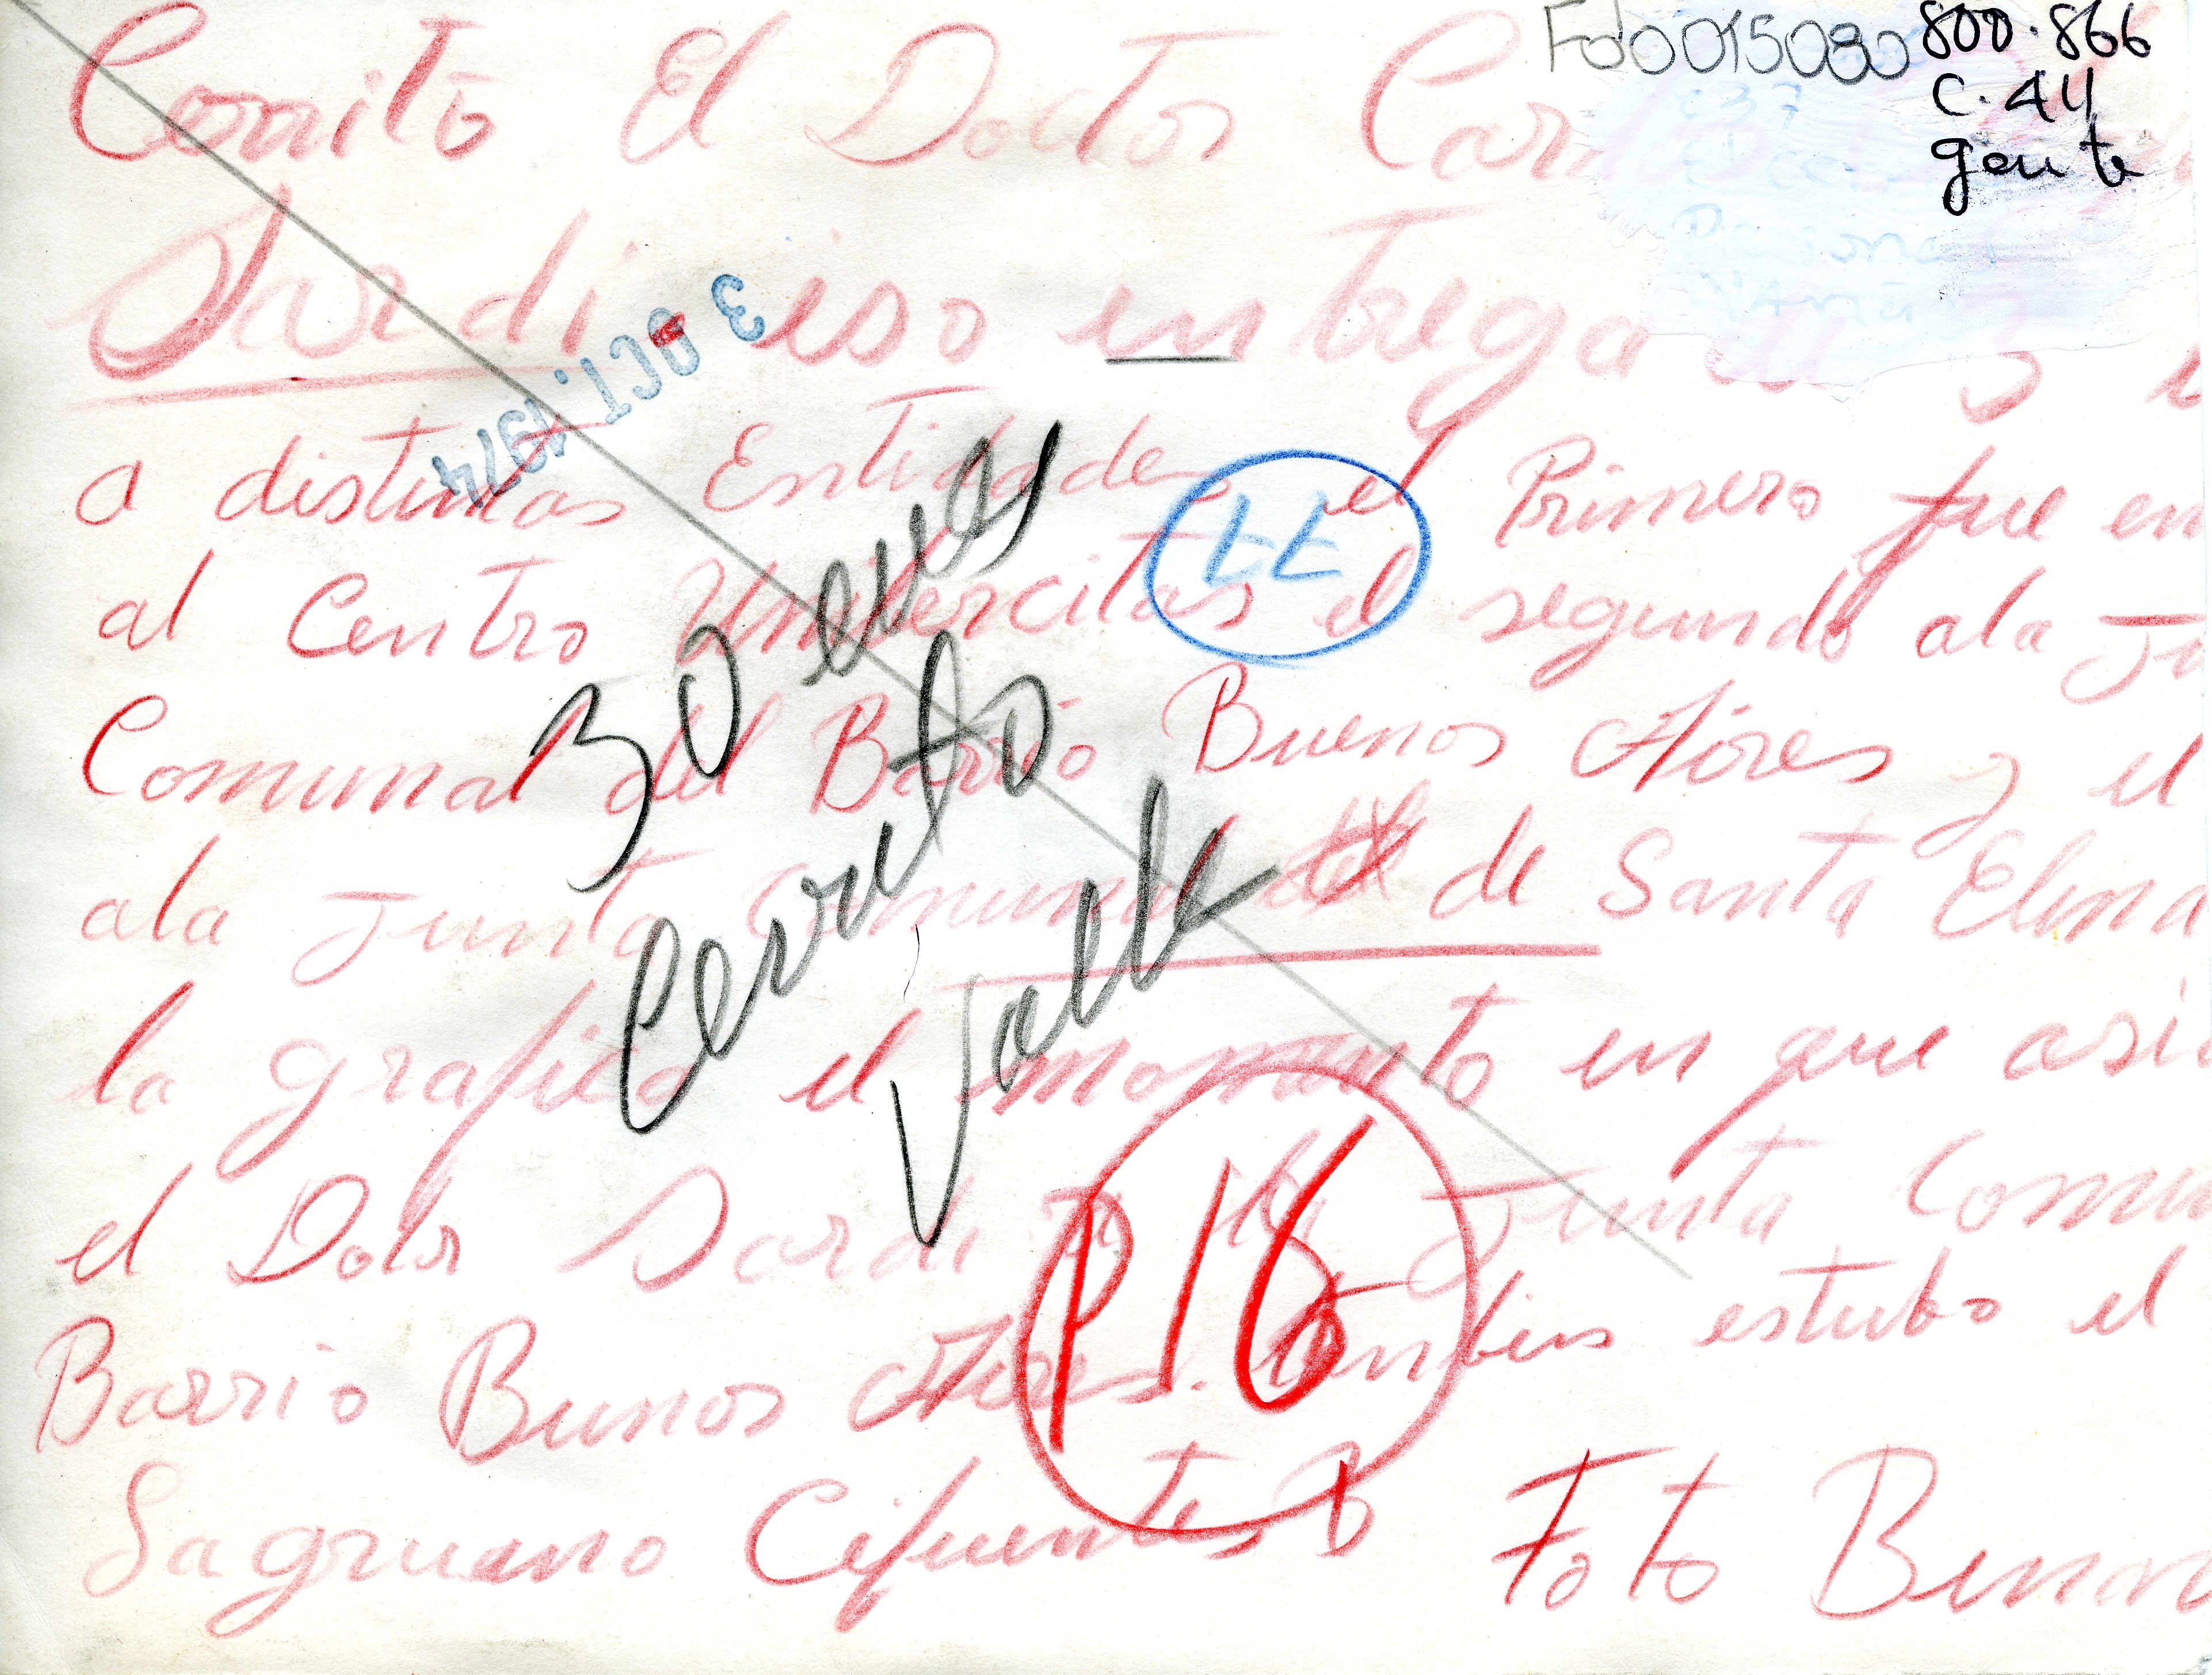 Fdo0015080 800.866
C. 44
gente
Cerrito El Doctor
Sardi iso entrega
3 OCT. 1974
a distintas Entidades el Primero fue en
al Centro Univercitas el segundo ala
Comunal del Barrio Buenos Aires y el
ala Junta Comunal de Santa Elena
la grafica el momento en que asi
el Dotor Sardi Junta Comu
Barrio Buenos Aires. tambien estubo el
Sagrueno Cifuentes Foto
LL
30
Cerrito
Valle
P16